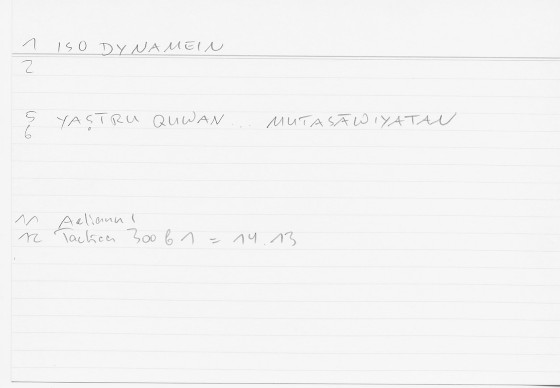 1 ISO DYNAMEIN
2
5 YAṢTRU QUWAN .. MUTASĀWIYATAN
6
11 Aelianus
12 Tactica 300 b 1 = 14.13